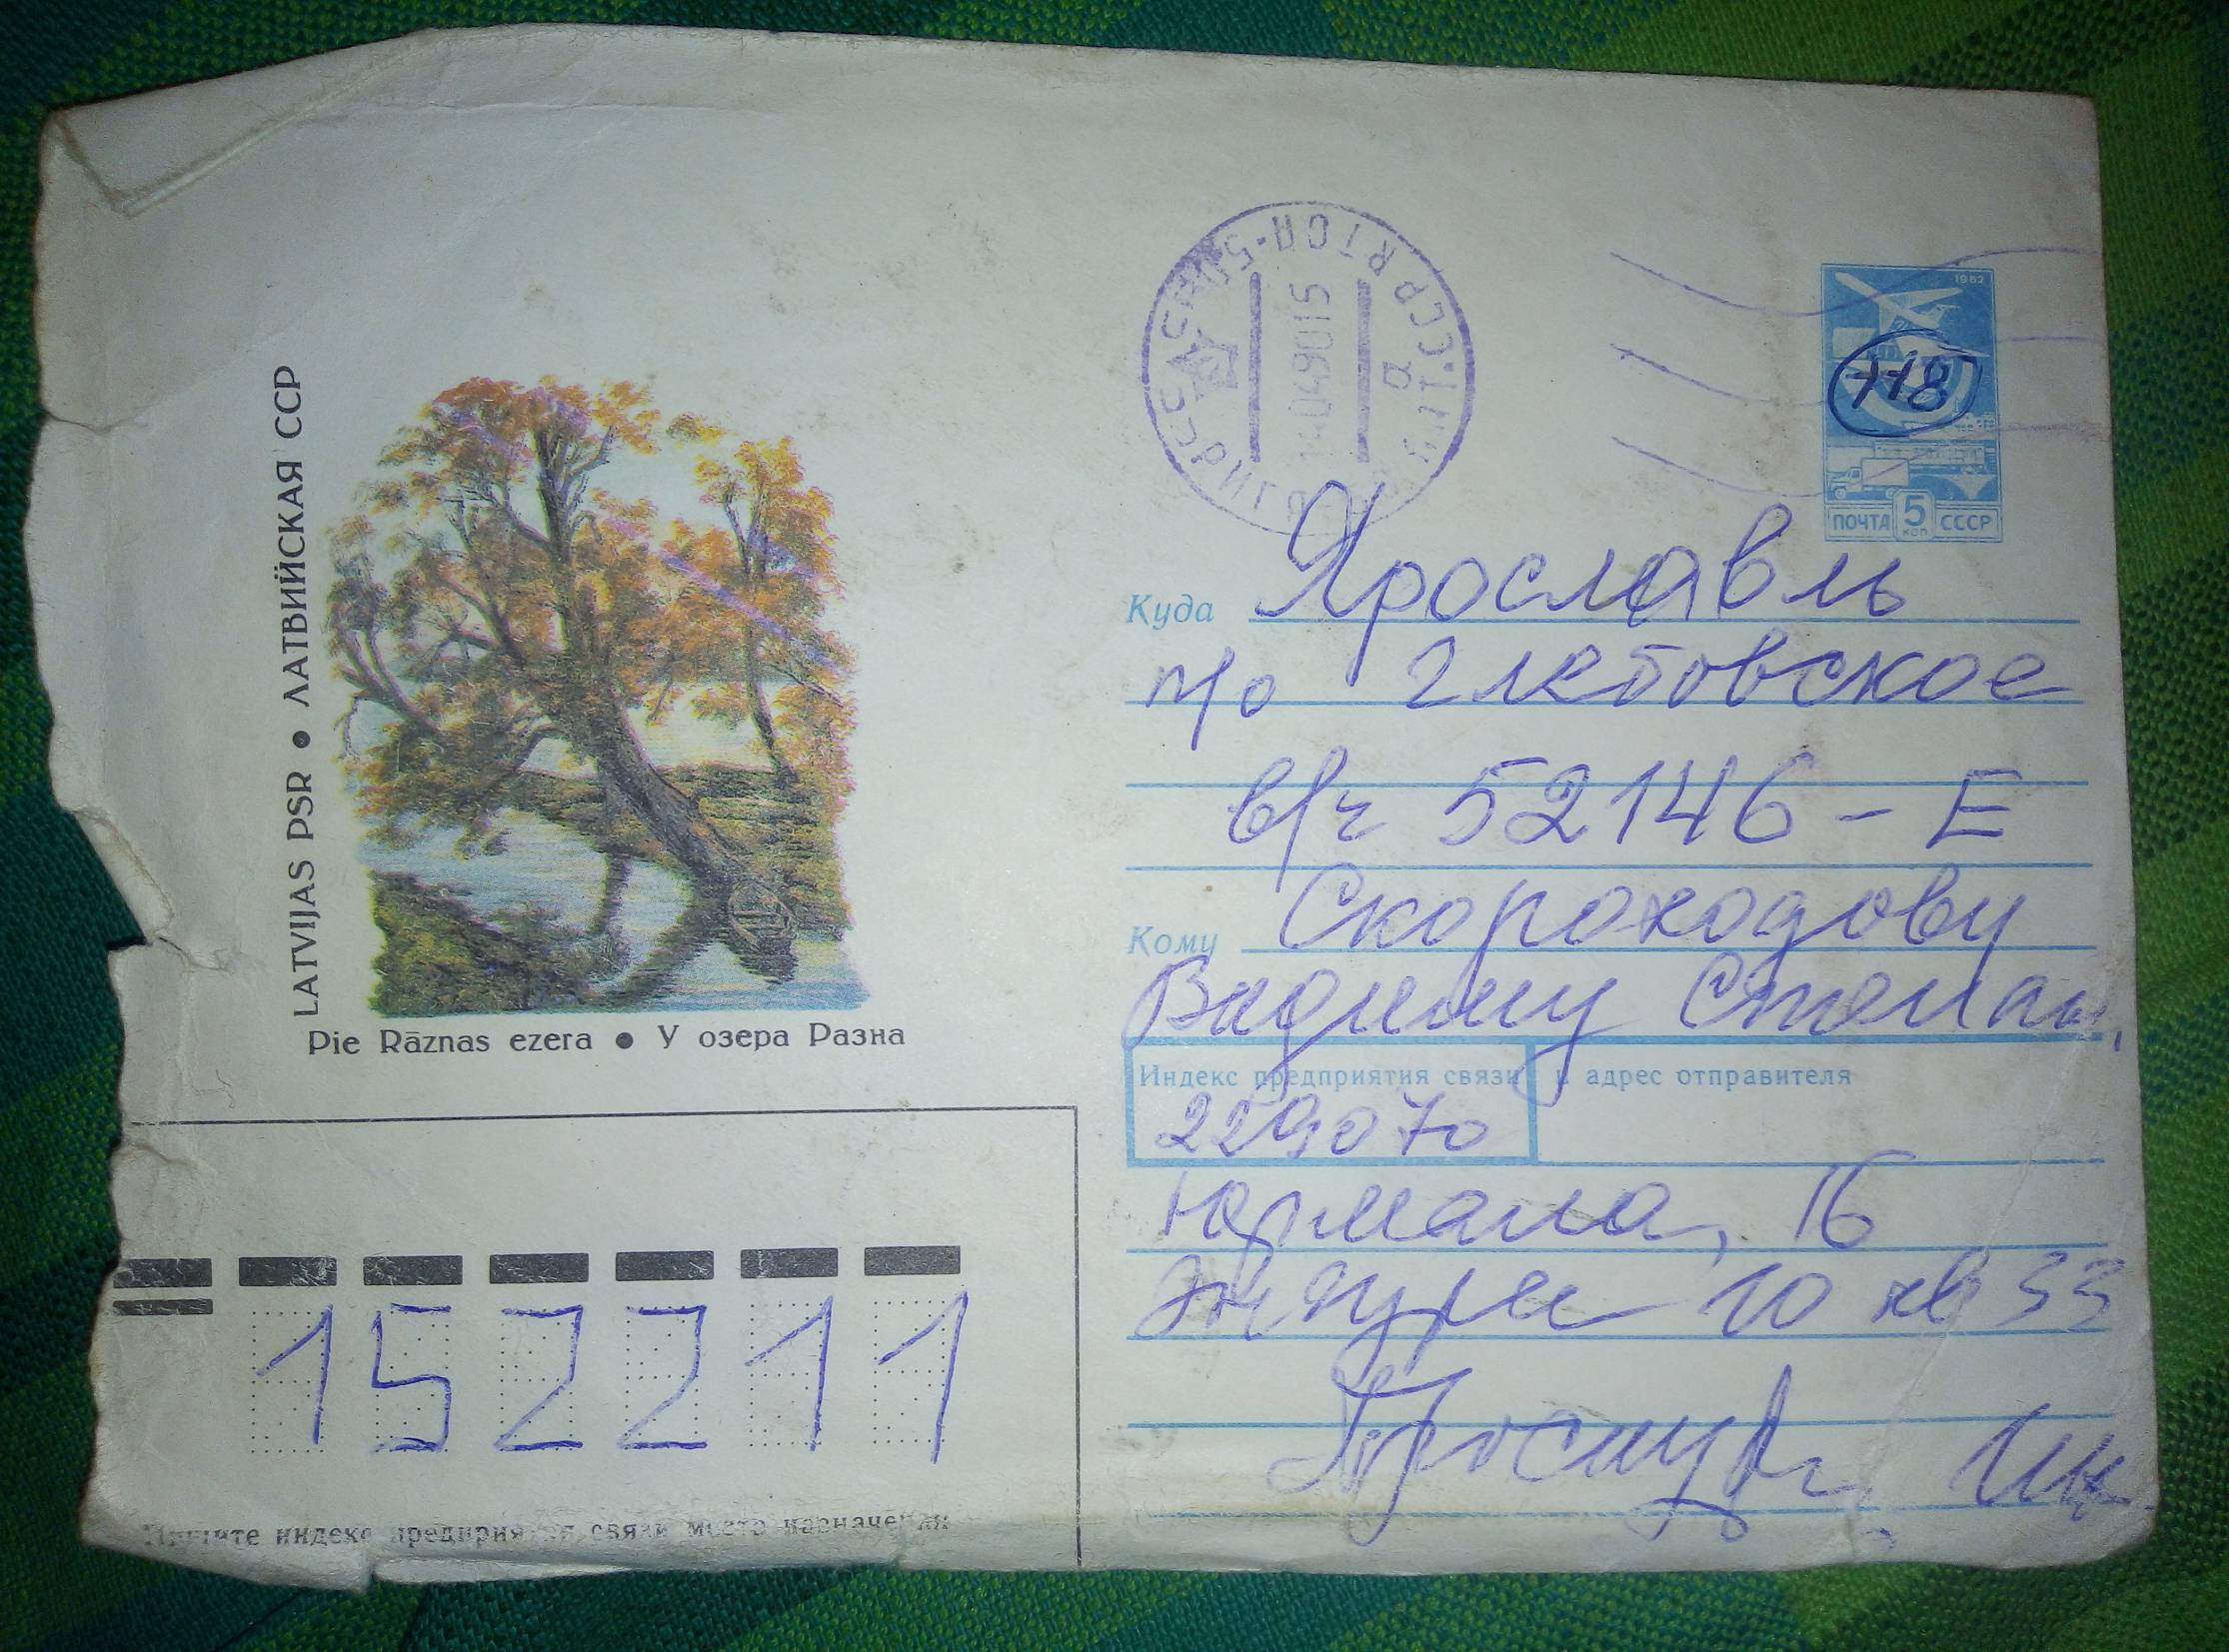 LATVIJAS PSR • ЛАТВИЙСКАЯ ССР
Pie Rāznas ezera • У озера Разна
1982
118
ПОЧТА 5 КОП СССР
Куда Ярославль
п/о Глебовское
в/ч 52146 - Е
Кому Скороходову
Вадиму Степан.
Индекс предприятия связи и адрес отправителя
229070
Юрмала, 16
Энгурес 10 кв 33
152211
Пишите индекс предприятия связи места назначения